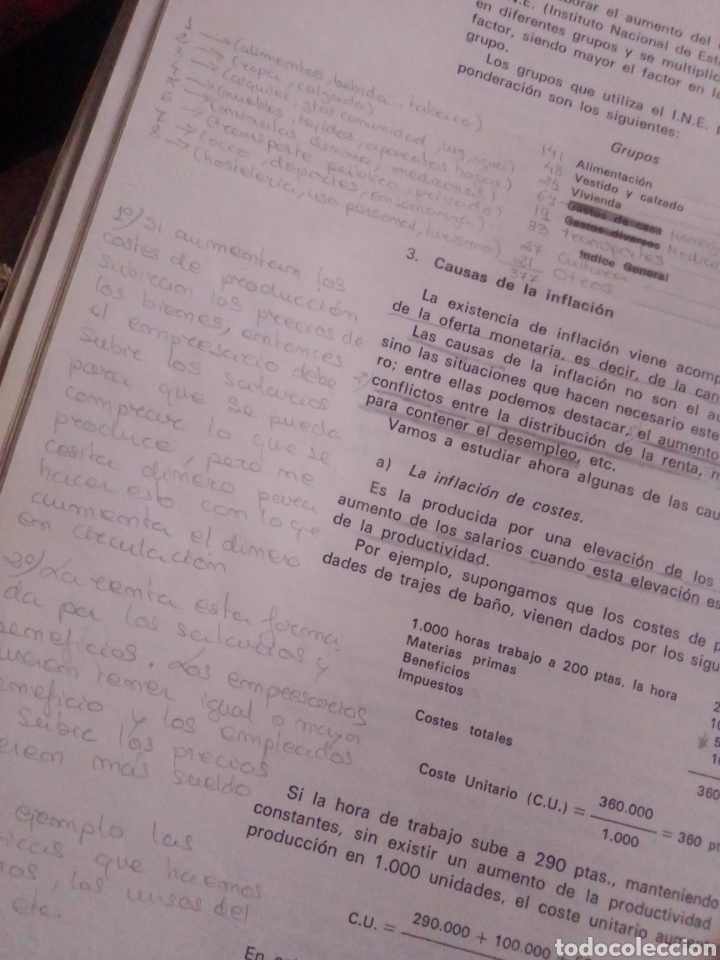 1 → (alimentos, bebida, tabaco)
2 → (ropa, calzado)
3 → (alquiler, gtos comunidad, luz, agua)
4 → (muebles, tejidos, aparatos hogar)
7 → (ocio, deportes, enseñanza)
8 → (hostelería, uso personal, turismo)
1º) Si aumentan los
costes de producción
subirán los precios de
los bienes, entonces
el empresario debe
subir los salarios
para que se pueda
comprar lo que se
produce, pero ne
cesita dinero para
hacer esto con lo que
aumenta el dinero
en circulación
La renta esta forma-
da por los salarios y
beneficios. Los empresarios
tener igual o mayor
beneficio y los empleados
sube los precios
más sueldo
ejemplo las
que hacemos
etc.
orar el aumento del
I.N.E. (Instituto Nacional de Esta
en diferentes grupos y se multiplic
factor, siendo mayor el factor en la
grupo.
Los grupos que utiliza el I.N.E. p
ponderación son los siguientes:
Grupos
Alimentación
Vestido y calzado
Vivienda
Gastos de casa
Gastos diversos
Transportes
Indice General
377 Otros
3. Causas de la inflación
La existencia de inflación viene acomp
de la oferta monetaria, es decir, de la can
Las causas de la inflación no son el au
sino las situaciones que hacen necesario este
ro; entre ellas podemos destacar, el aumento
conflictos entre la distribución de la renta, n
para contener el desempleo, etc.
Vamos a estudiar ahora algunas de las cau
a) La inflación de costes.
Es la producida por una elevación de los
aumento de los salarios cuando esta elevación es
de la productividad.
Por ejemplo, supongamos que los costes de p
dades de trajes de baño, vienen dados por los sigu
1.000 horas trabajo a 200 ptas. la hora
Materias primas
Beneficios
Impuestos
Costes totales 360
Coste Unitario (C.U.) = 360.000 / 1.000 = 360 pt
Si la hora de trabajo sube a 290 ptas., manteniendo
constantes, sin existir un aumento de la productividad
producción en 1.000 unidades, el coste unitario aumen
C.U. = 290.000 + 100.000
todocoleccion